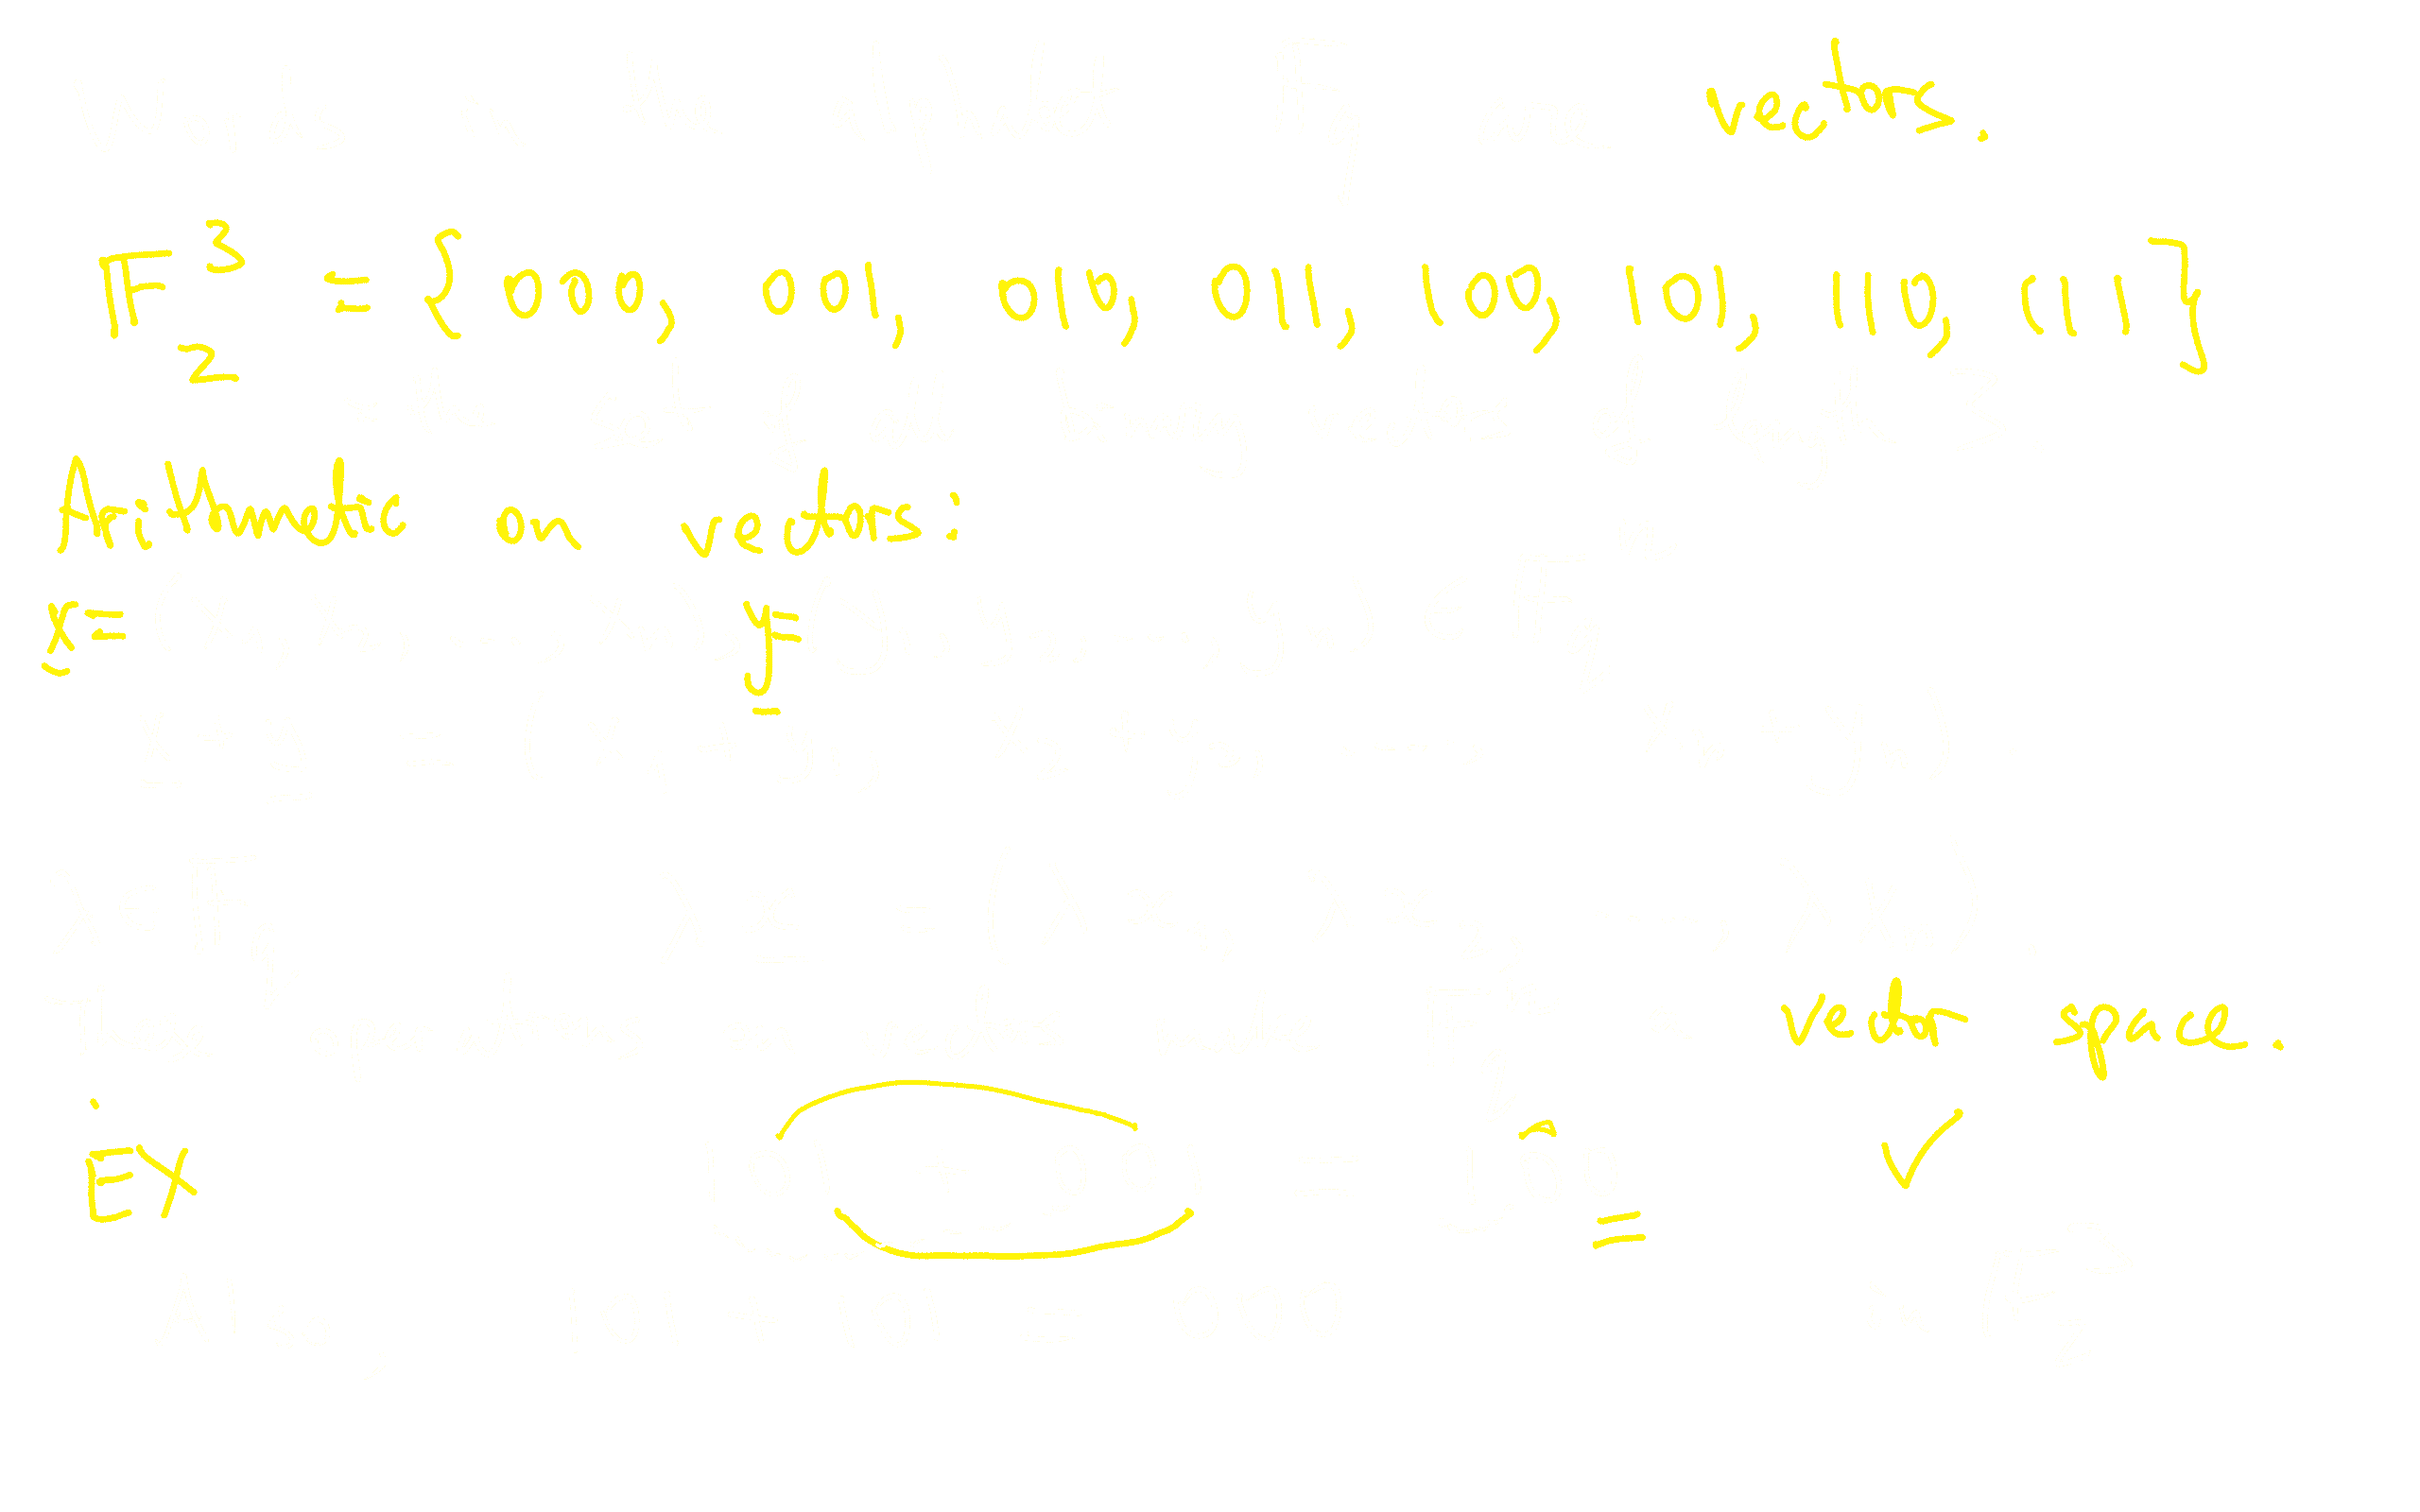 vectors.
𝔽₂³ = { 000, 001, 010, 011, 100, 101, 110, 111 }
Arithmetic on vectors:
x= y=
vector space.
EX = ✓